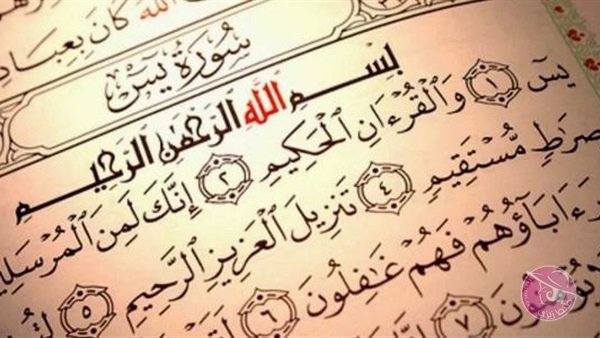 الله كان بعبا
سُورَةُ يسٓ
بِسْمِ اللَّهِ الرَّحْمَٰنِ الرَّحِيمِ
يسٓ ١ وَالْقُرْءَانِ الْحَكِيمِ ٢ إِنَّكَ لَمِنَ الْمُرْسَلِ
صِرَاطٍ مُّسْتَقِيمٍ ٤ تَنزِيلَ الْعَزِيزِ الرَّحِيمِ ٥
ءَابَآؤُهُمْ فَهُمْ غَٰفِلُونَ ٦
٧